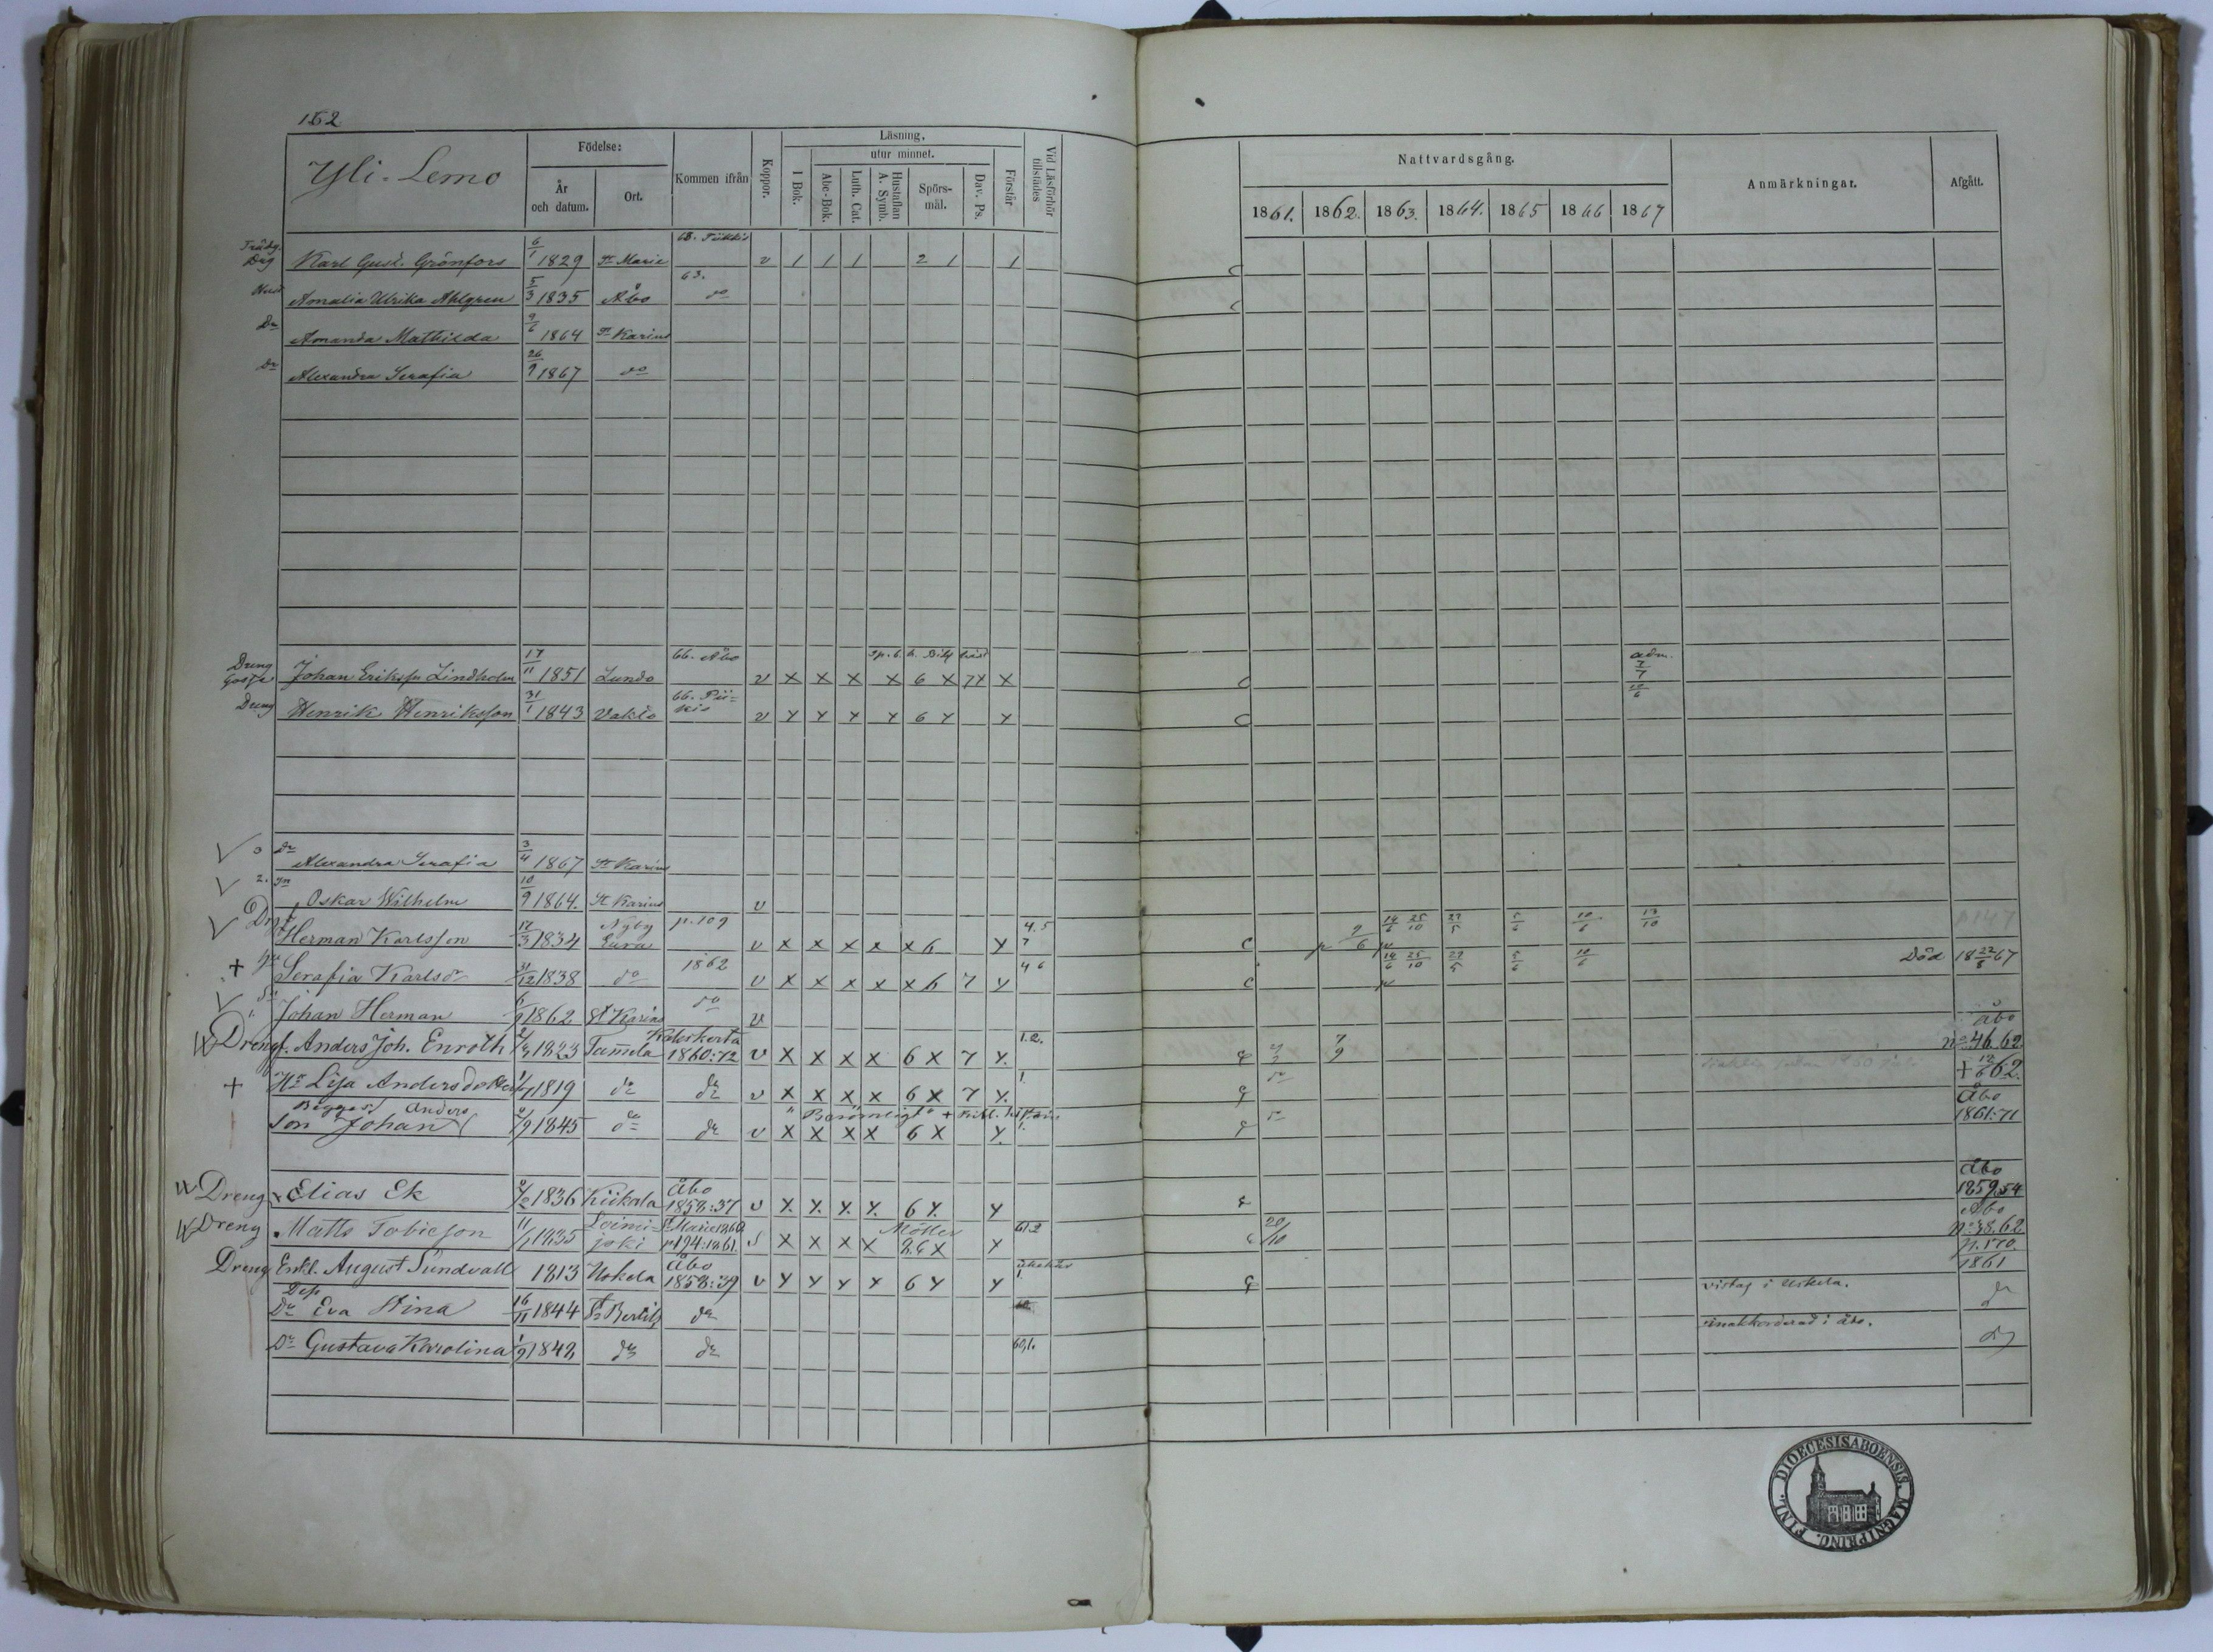 152
Yli-Lemo
Födelse:
År och datum.
Ort.
Kommen ifrån
Koppor.
Läsning.
I Bok.
utur minnet.
Abc-Bok.
Luth. Cat.
Hustaflan A. Symb.
Spörs-mål.
Dav. Ps.
Förstår
Vid Läsförhör tillstädes
Nattvardsgång.
1861. 1862. 1863. 1864. 1865 1866 1867
Anmärkningar.
Afgått.
Karl Gust. Grönfors 6/1 1829 St Marie v 1 1 1 2 1 1
Amalia Ulrika Ahlgren 5/3 1835 Åbo 63. do
Dr Amanda Mathilda 9/6 1864 St Karins
Dr Alexandra Serafia 26/9 1867 do
Dreng Gosse Johan Eriksson Lindholm 17/11 1851 Lundo 66. Åbo v x x x x 6 x 7 x x adm. 7/7
Dreng Henrik Henriksson 31/1 1843 Vakto 66. Piikis v x x x x 6 x x
Dr Alexandra Serafia 3/4 1867 St Karins
2. Sn Oskar Wilhelm 10/9 1864. St Karins v
Herman Karlsson 17/3 1834 Eura Nyby p. 109 v x x x x x 6 x 4.5 7 9/6 14/6 25/10 29/5 5/6 10/6 13/10 p 147
+ Serafia Karlsdr 31/12 1838 do 1862 v x x x x x 6 7 x 4 6 14/6 25/10 29/5 5/6 10/6 Död 18 22/8 67
Johan Herman 6/9 1862 St Karins do v
Drengf. Anders Joh. Enroth 1823 Tamela 1860:72 v x x x x 6 x 7 x. 1.2. 7/9 Åbo no 46.62.
+ Hu Lisa Andersdotter 1819 do do v x x x x 6 x 7 x. 1. do + 62.
Begges Son Anders Johan 1845 do do v x x x x 6 x x. 1. Åbo 1861:71
Dreng Elias Ek 1836 Kiikala Åbo 1858:37 v x x x x 6 x. x Åbo 1859.54
Dreng Matts Tobiesson 1835 Loimijoki St Marie 1860 p 194:1861. x x x x x 61.2 20/10 Åbo no 38.62.
Dreng Enkl. August Sundvall 1813 Uskela Åbo 1858:39 v x x x x 6 x x 1. vistas i Uskela. p. 170. 1861
Dr Eva Stina 16/11 1844 St Bertils do do
Dr Gustava Karolina 1/9 1842 do do 60,1. inakkorderad i Åbo. do
DIOECESIS ABOENSIS. MAGNI PRINC. FINL.